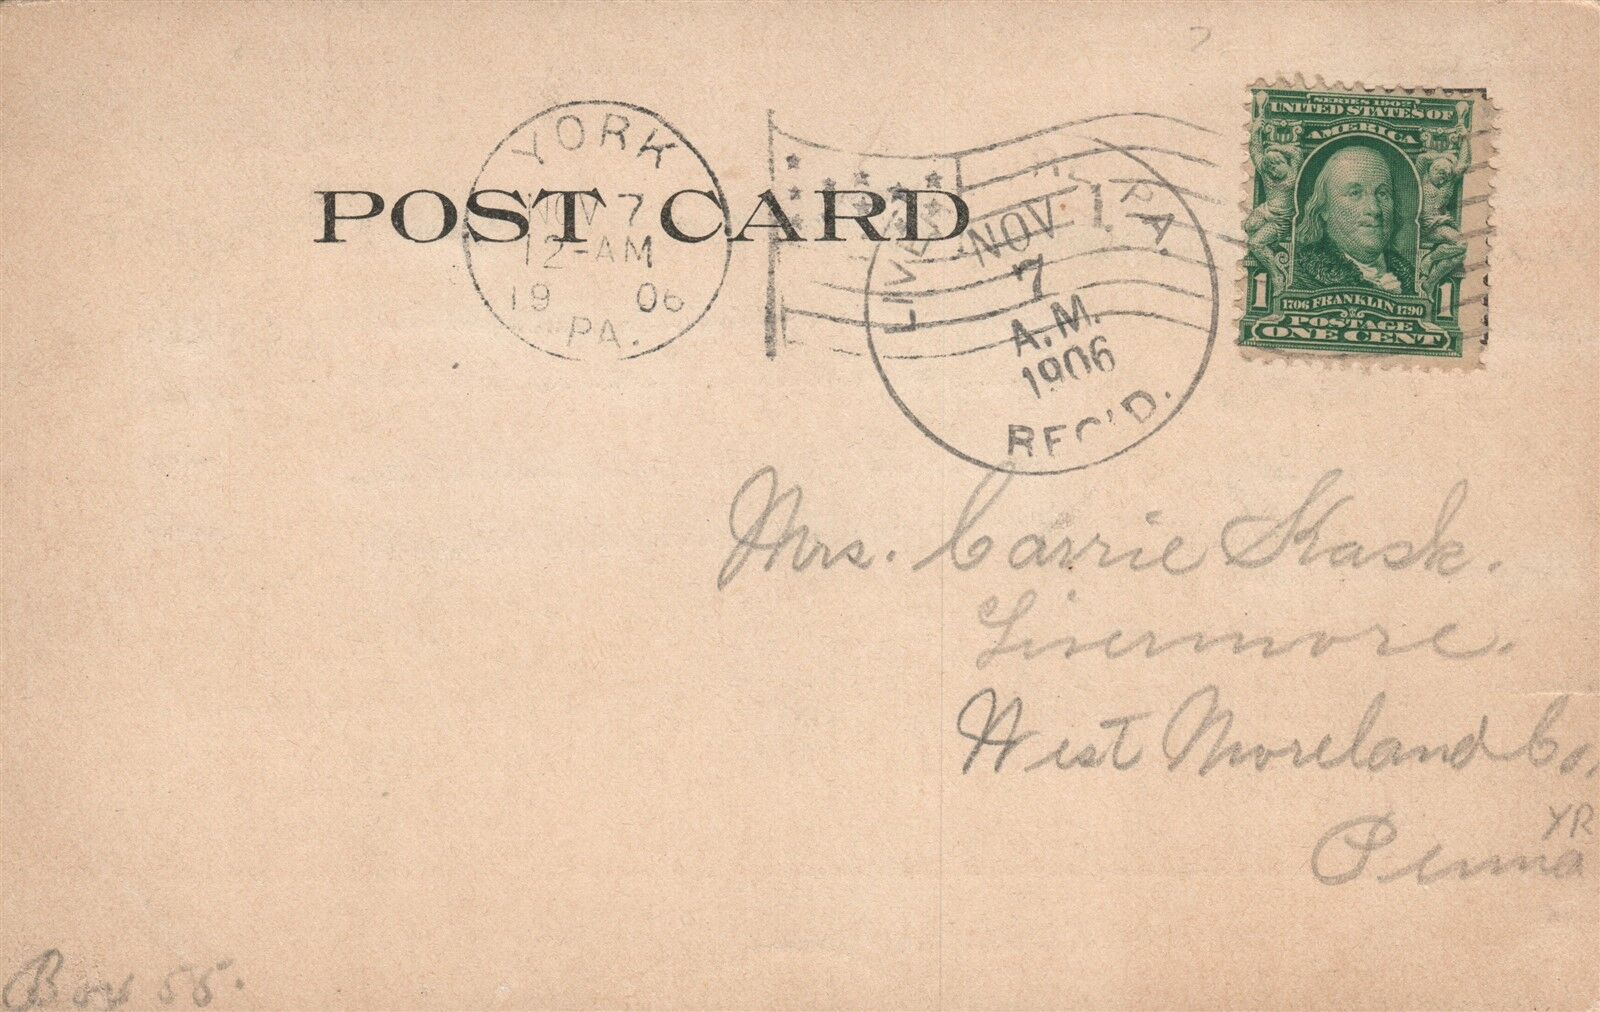 POST CARD
YORK
NOV 7
12-AM
19 06
PA.
NOV 7
A.M.
1906
REC'D.
SERIES 1902
UNITED STATES OF
AMERICA
1 1706 FRANKLIN 1790 1
POSTAGE
ONE CENT
Mrs. Carrie Kask.
Livermore.
West Moreland Co,
YR
Penna
Box 55.